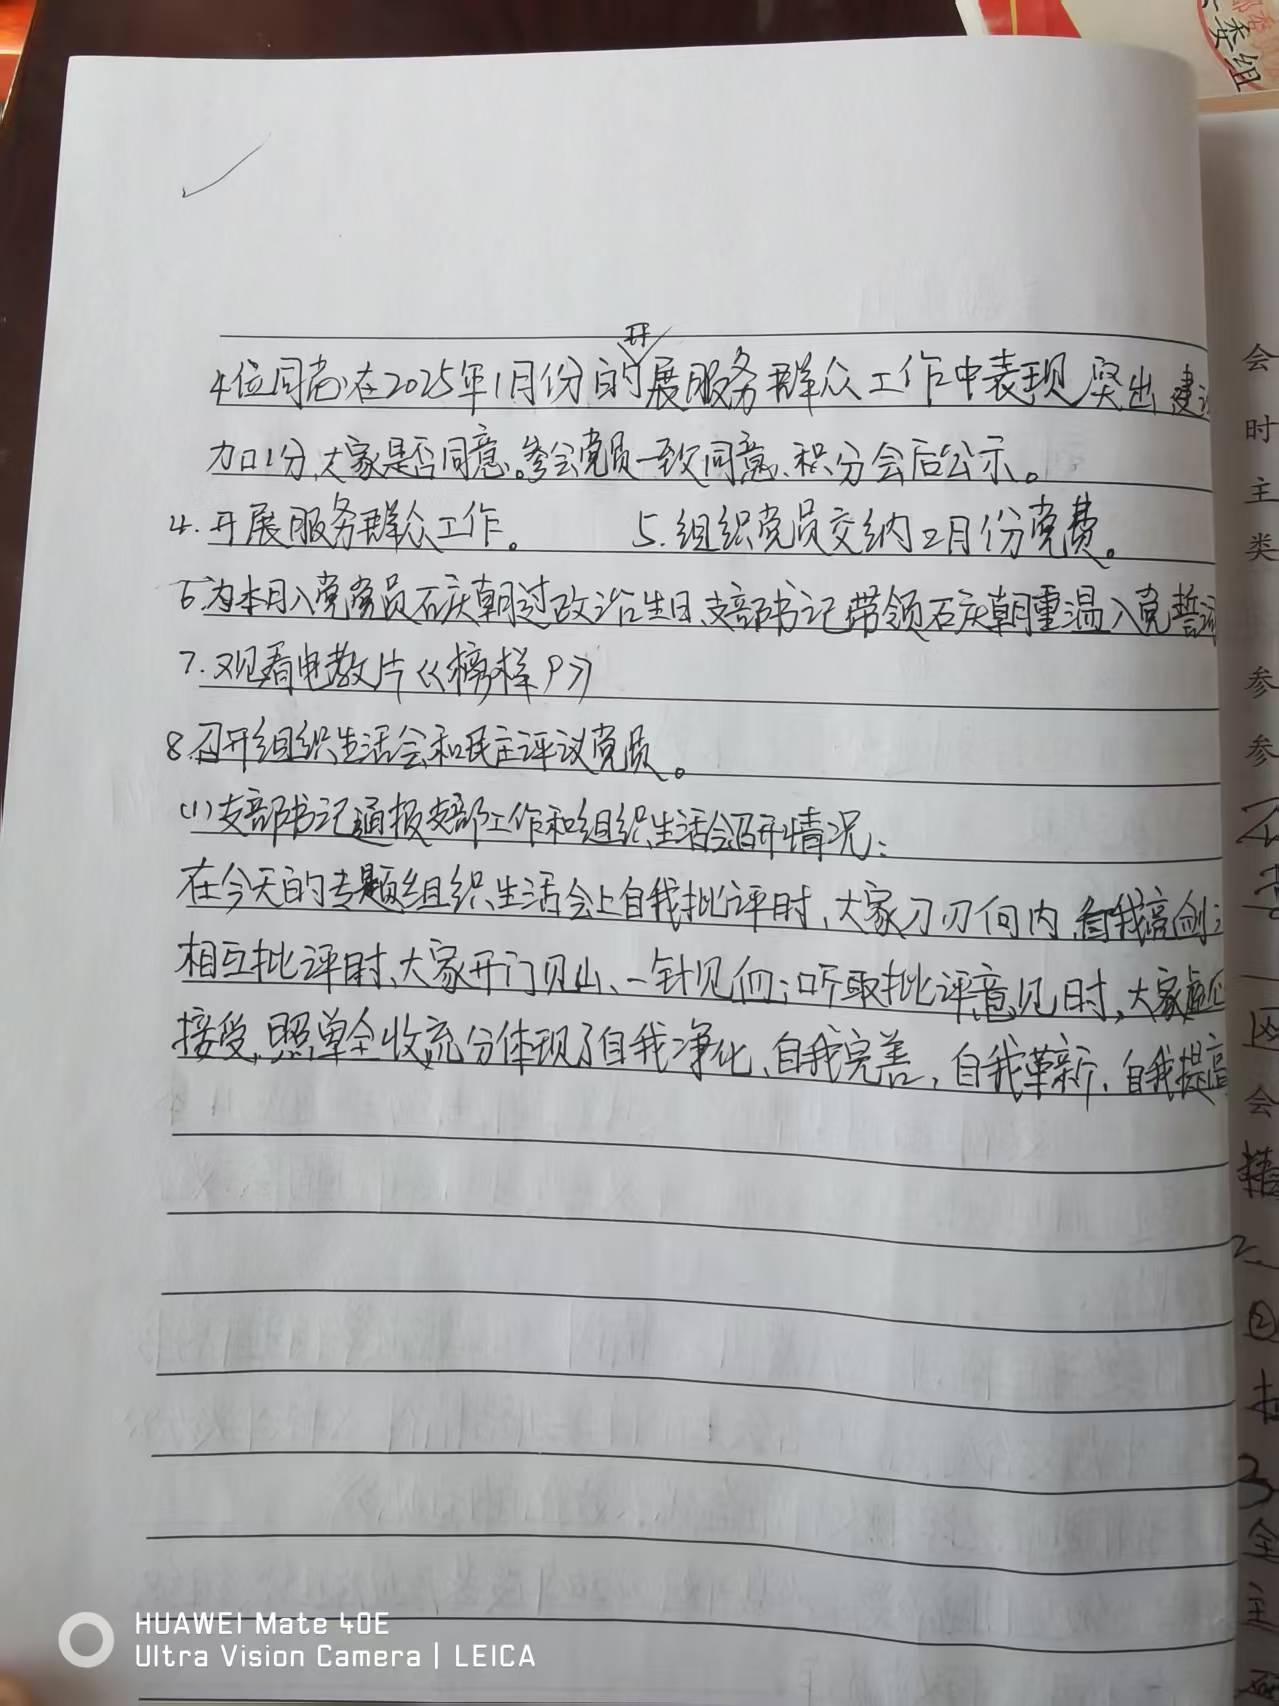 委组
开
4位同志在2025年1月份的展服务群众工作中表现突出建议
加1分,大家是否同意。参会党员一致同意、积分会后公示。
4.开展服务群众工作。 5.组织党员交纳2月份党费。
6.为本月入党党员石庆朝过政治生日、支部书记带领石庆朝重温入党誓词
7.观看电教片《榜样9》
8.召开组织生活会和民主评议党员。
(1)支部书记通报支部工作和组织生活会召开情况:
在今天的专题组织生活会上自我批评时、大家刀刃向内、自我亮剑;
相互批评时、大家开门见山、一针见血;听取批评意见时,大家虚心
接受,照单全收,充分体现了自我净化、自我完善,自我革新、自我提高
会
时
主
类
参
参
会
2.
②
3
全
主
HUAWEI Mate 40E
Ultra Vision Camera | LEICA